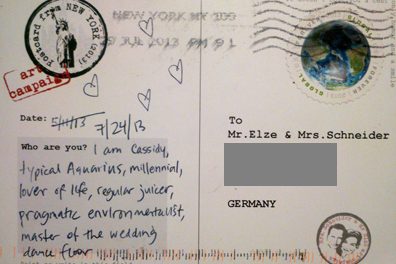 Postcard from NEW YORK (2013)
NEW YORK NY 100
JUL 2013 PM 9 L
art
campaign
GLOBAL
FOREVER
Date: 5/11/13 7/24/13
Who are you? I am Cassidy,
typical Aquarius, millennial,
lover of life, regular juicer,
pragmatic environmentalist,
master of the wedding
dance floor
To
Mr.Elze & Mrs.Schneider
GERMANY